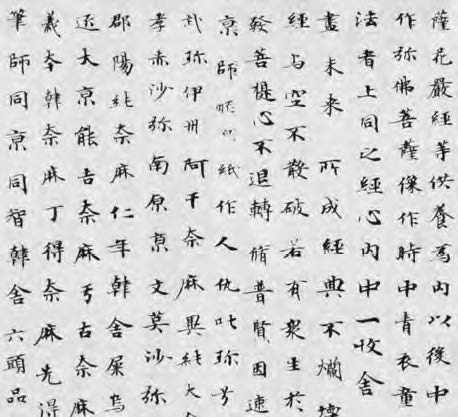 薩花嚴經等供養爲內以後中
作弥佛菩薩像作時中青衣童
法者上同之經心內中一收舍
盡未來 所成經典不爛壞
經与空不散破 若有衆生於
發菩提心不退轉 脩普賢因速
京師 紙作人仇叱珎兮
武珎伊州阿干奈麻異純大
孝赤沙弥南原京 文莫沙弥
郡陽純奈麻仁年韓舍屎烏
大京能吉奈麻亐古奈麻
義本韓奈麻丁得奈麻先得
筆師同京同智韓舍 六頭品